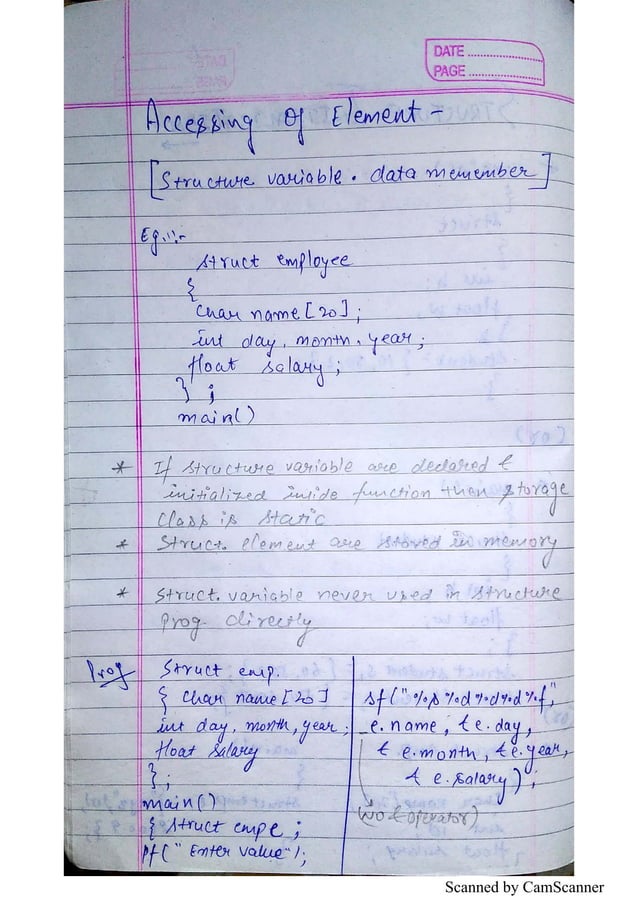 DATE
PAGE
Accessing of Element -
[Structure variable . data memember]
Eg.:-
struct employee
{
char name[20];
int day, month, year;
float salary;
};
main()
* If structure variable are declared &
initialized inside function then storage
class is static
* Struct. element are stored in memory
* Struct. variable never used in structure
prog. directly
Prog Struct emp.
{ char name[20]
int day, month, year;
float salary
};
main()
{ struct emp e;
pf(" Enter value");
sf("%s %d %d %d %f",
e.name, & e.day,
& e.month, & e.year,
& e.salary);
(wo & operator)
Scanned by CamScanner